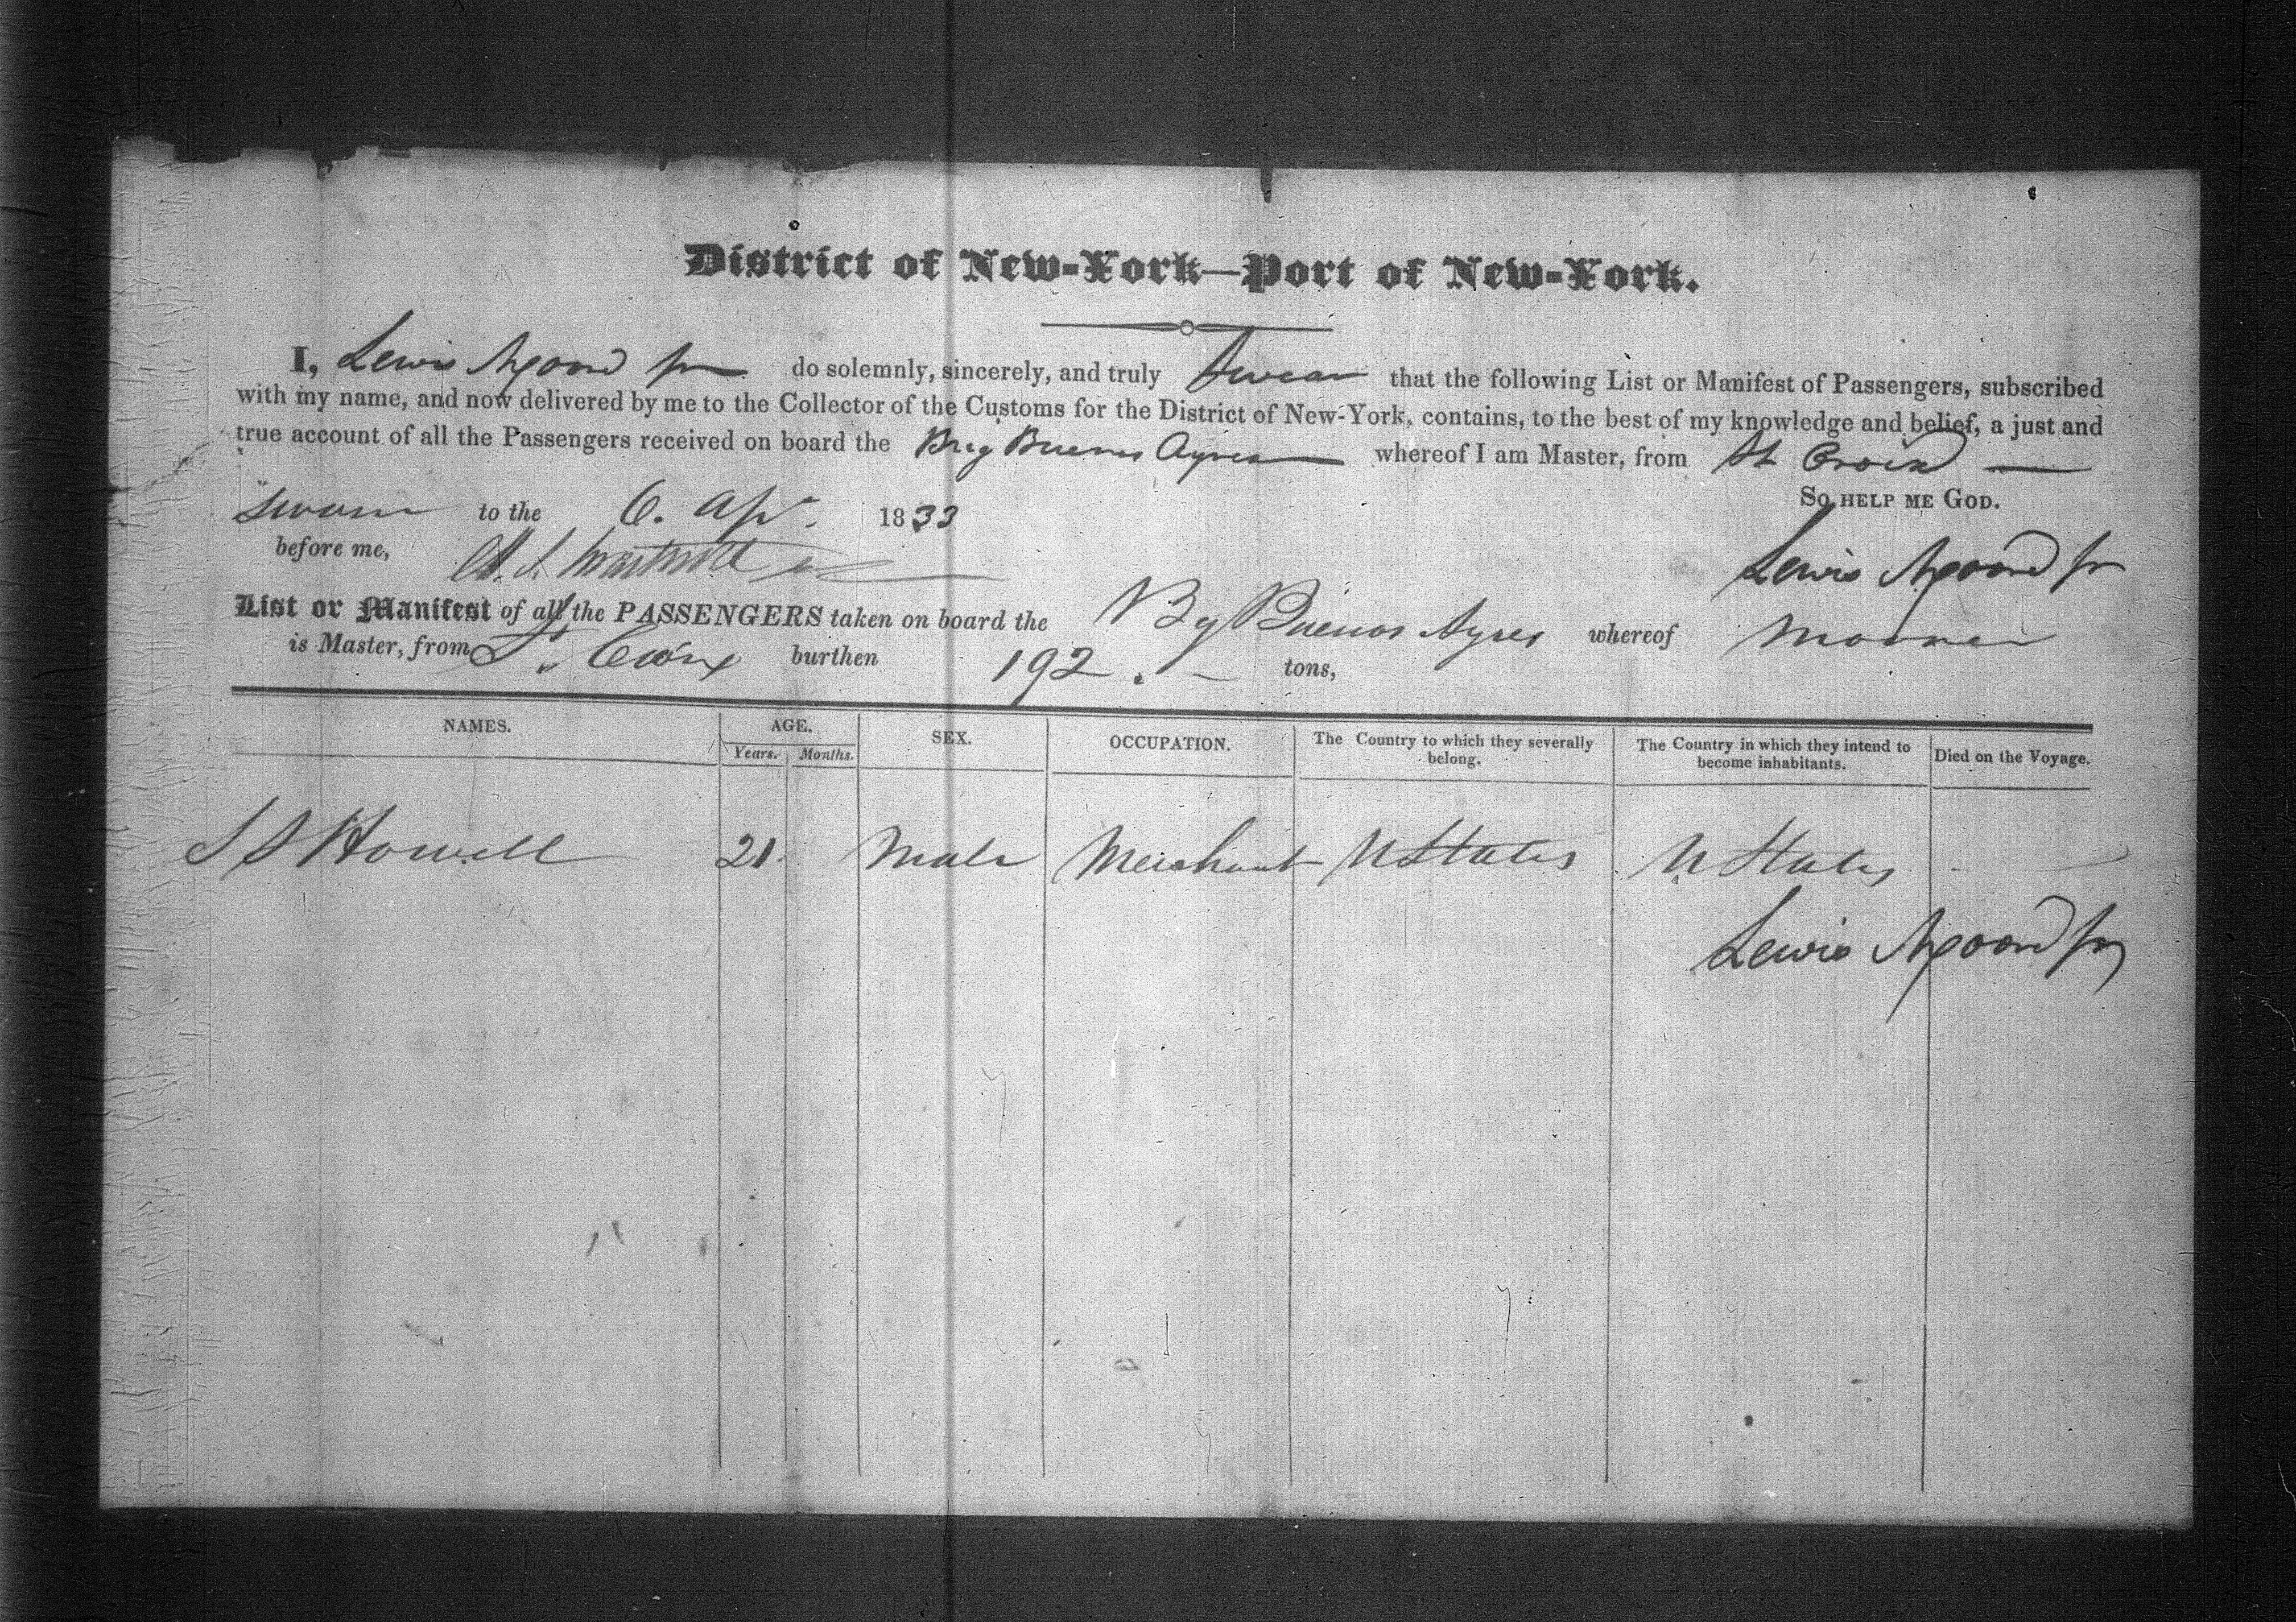 District of New-York—Port of New-York.
I, Lewis do solemnly, sincerely, and truly Swear that the following List or Manifest of Passengers, subscribed
with my name, and now delivered by me to the Collector of the Customs for the District of New-York, contains, to the best of my knowledge and belief, a just and
true account of all the Passengers received on board the Brig Buenos Ayres whereof I am Master, from St Croix
So help me God.
sworn to the 6. Apr. 1833
before me,
Lewis
List or Manifest of all the PASSENGERS taken on board the Bg Buenos Ayres whereof
is Master, from St Croix burthen 192. tons,
NAMES. AGE. SEX. OCCUPATION. The Country to which they severally belong. The Country in which they intend to become inhabitants. Died on the Voyage.
Years. Months.
S Howell 21 Male Merchant U States U States
Lewis